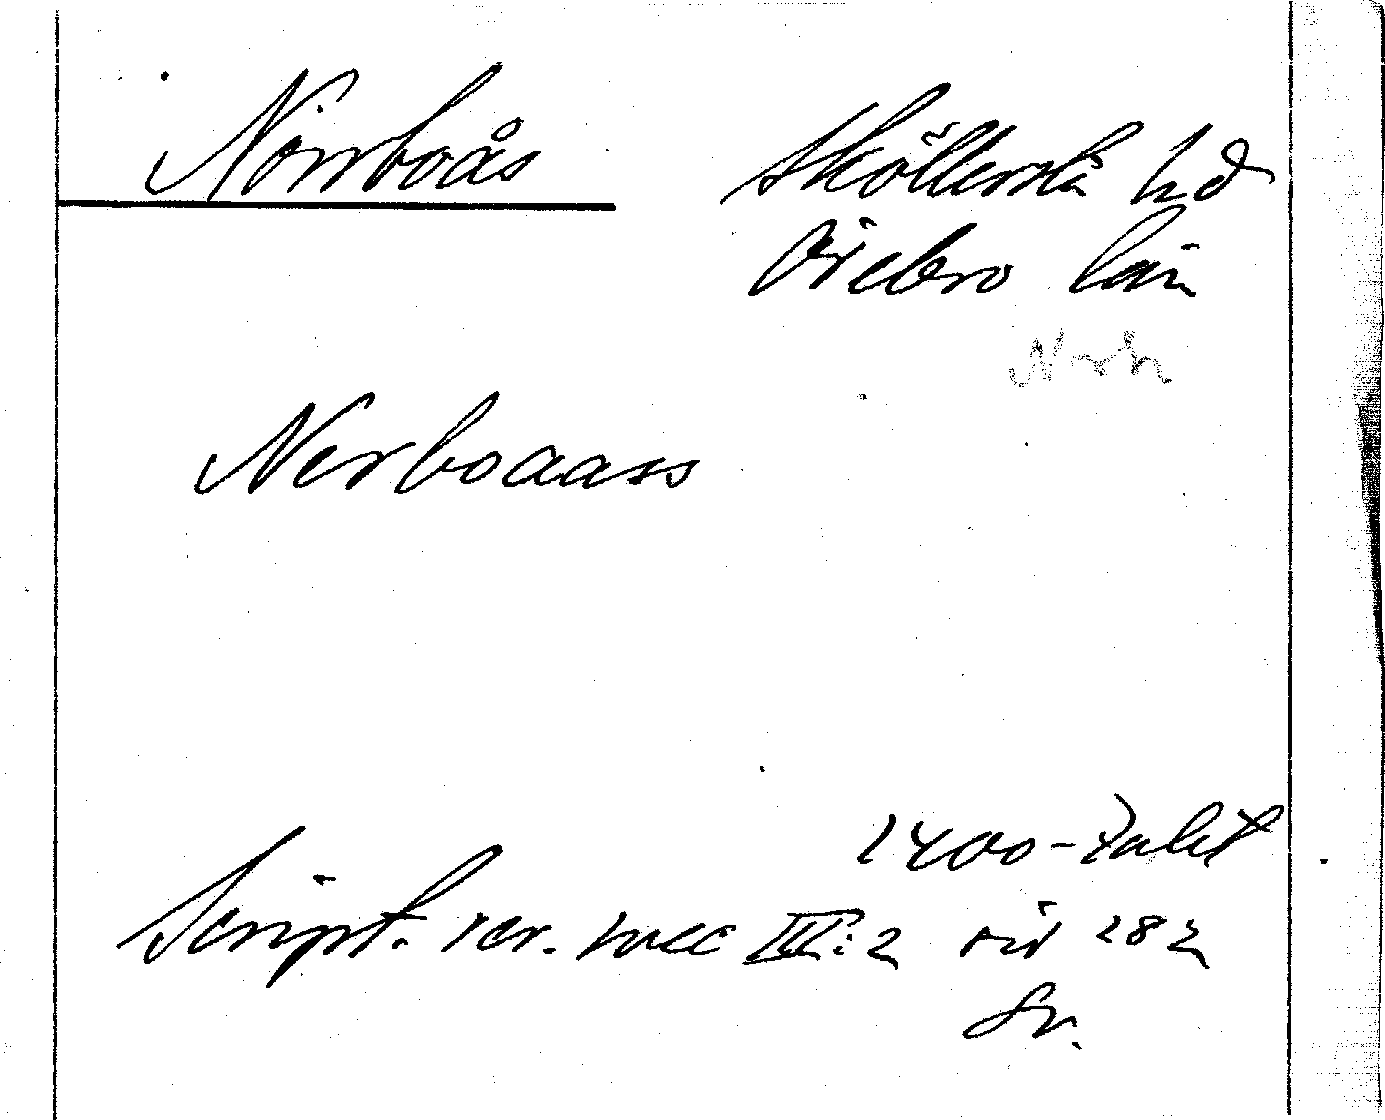 Norrboås
Sköllersta hd
Örebro län
Norrb
Nerboaass
1400-talet
Script. rer. svec III:2 sid 282
Sv.